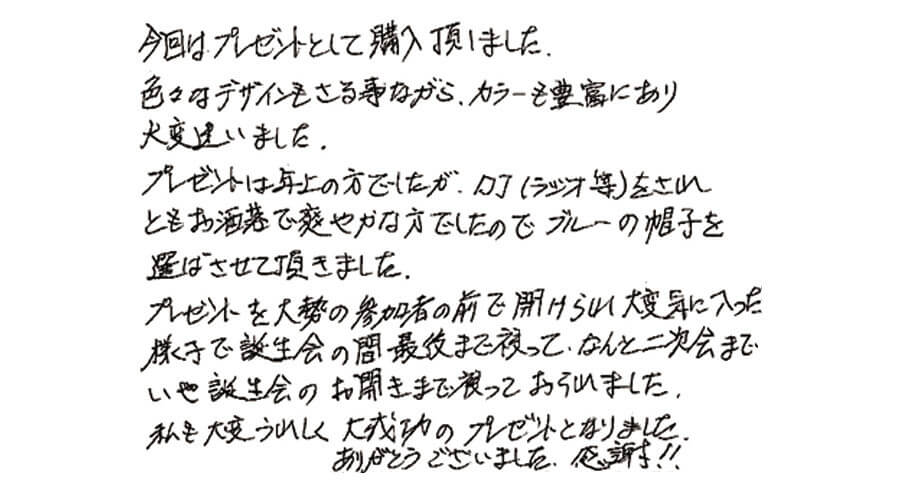 今回はプレゼントとして購入頂いました.
色々なデザインもさる事ながら、カラーも豊富にあり
大変迷いました.
プレゼントは年上の方でしたが、DJ (ラジオ等)をされ
ともお洒落で爽やかな方でしたのでブルーの帽子を
選ばさせて頂きました.
プレゼントを大勢の参加者の前で開けられ大変気に入った
様子で誕生会の間最後まで被って、なんと二次会まで
いや誕生会のお開きまで被っておられました.
私も大変うれしく大成功のプレゼントとなりました.
ありがとうございました. 感謝す!!